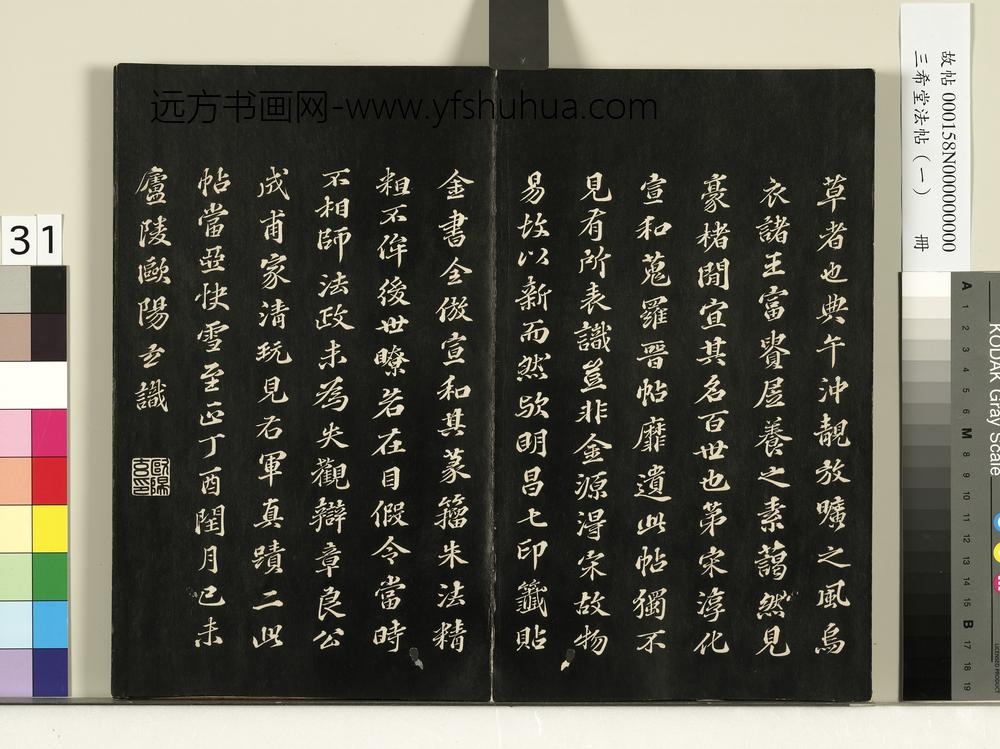 远方书画网-www.yfshuhua.com
故帖 000158N000000000
三希堂法帖（一） 冊
草者也典午沖靚放曠之風烏
衣諸王富貴居養之素藹然見
豪楮閒宣其名百世也第宋淳化
宣和蒐羅晉帖靡遺此帖獨不
見有所表識豈非金源淂宋故物
易故以新而然歟明昌七印籤貼
金書全倣宣和其篆籀朱法精
粗不侔後世瞭若在目假令當時
不相師法政未為失觀辯章良公
成甫家清玩見右軍真蹟二此
帖當並快雪至正丁酉閏月己未
廬陵歐陽玄識
歐陽玄印
31
KODAK Gray Scale
A 1 2 3 4 5 6 M 8 9 10 11 12 13 14 15 B 17 18 19